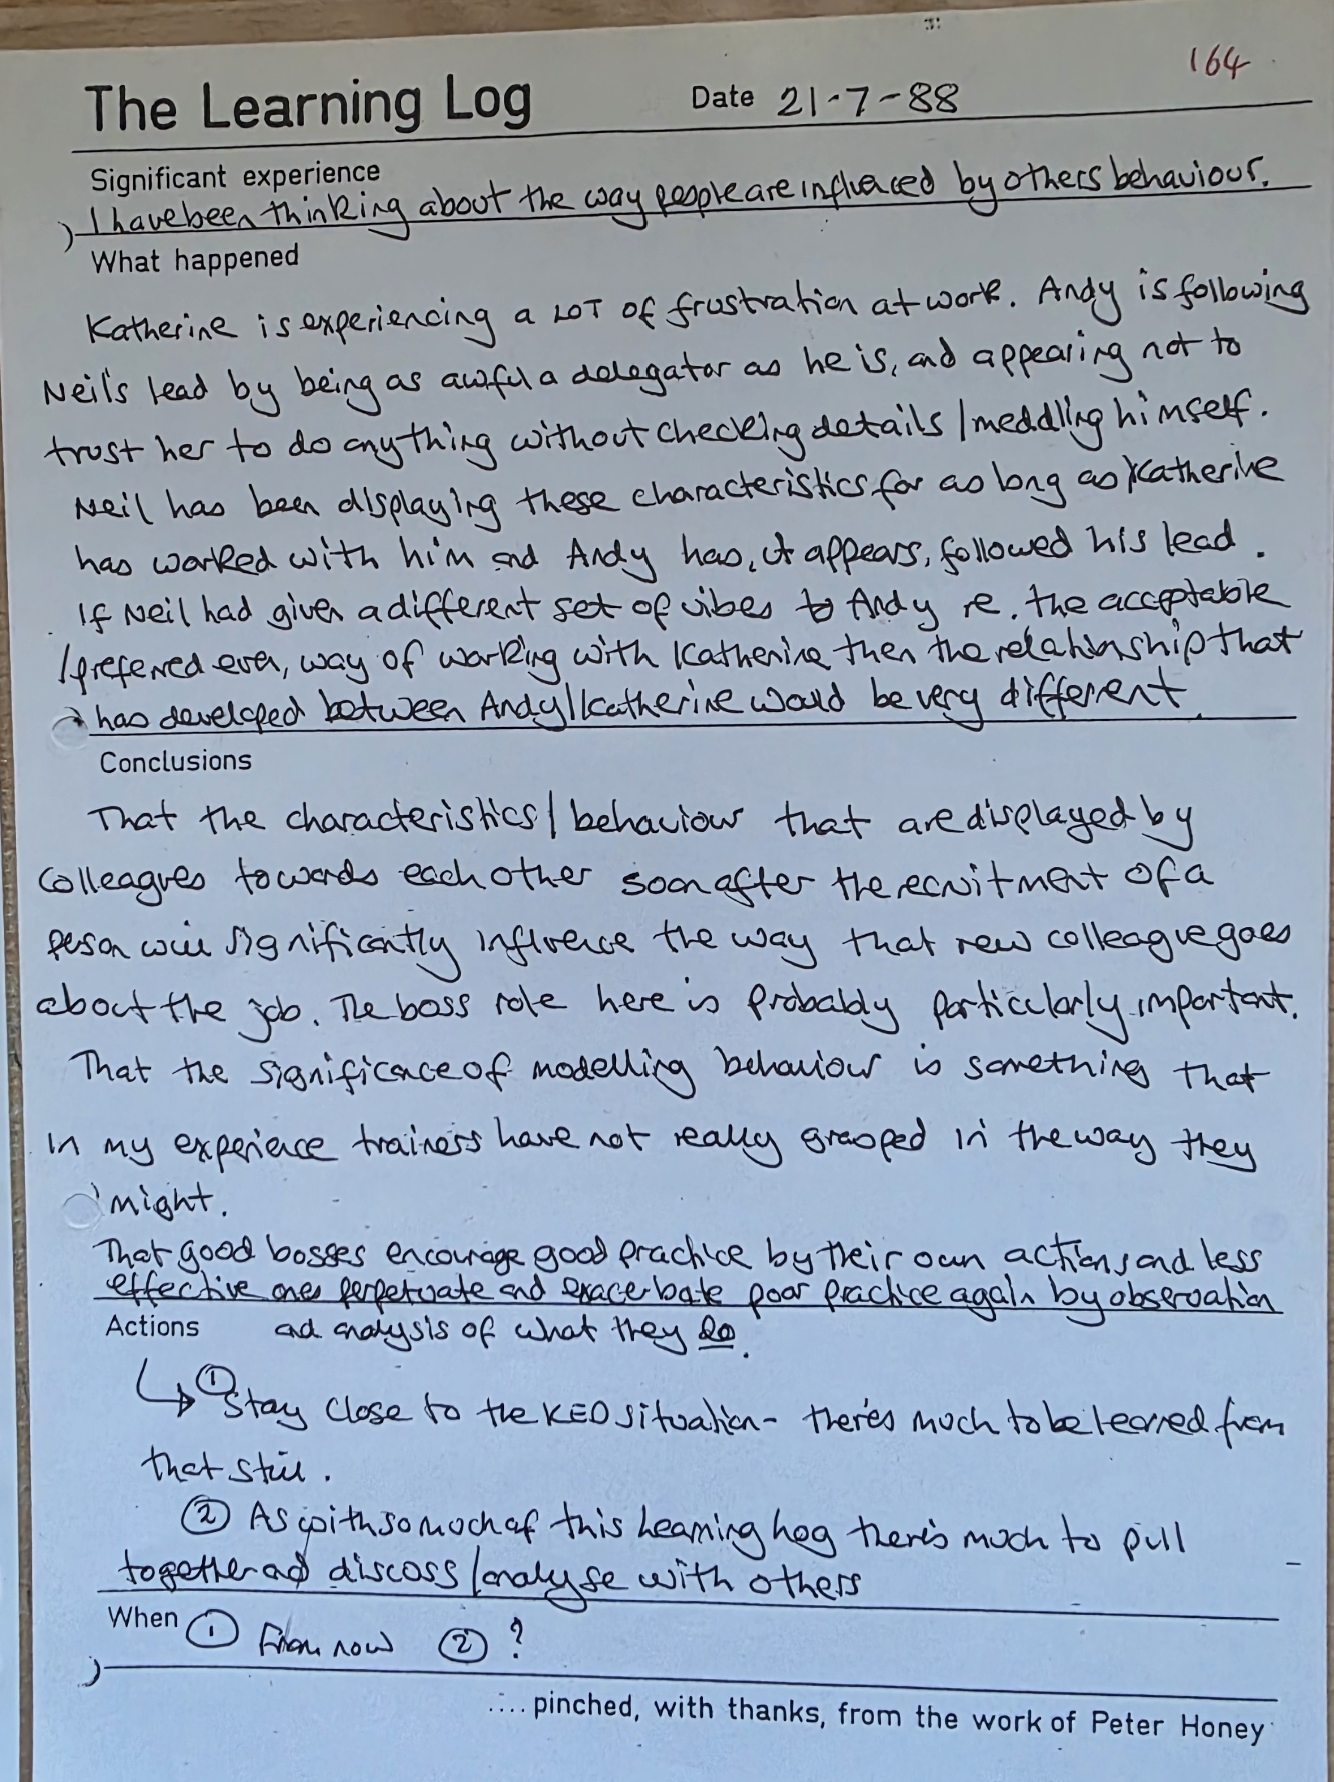 164
The Learning Log Date 21-7-88
Significant experience
I have been thinking about the way people are influenced by others behaviour.
What happened
Katherine is experiencing a LOT of frustration at work. Andy is following
Neil's lead by being as awful a delegator as he is, and appearing not to
trust her to do anything without checking details / meddling himself.
Neil has been displaying these characteristics for as long as Katherine
has worked with him and Andy has, it appears, followed his lead.
If Neil had given a different set of vibes to Andy re. the acceptable
/preferred even, way of working with Katherine then the relationship that
has developed between Andy/Katherine would be very different.
Conclusions
That the characteristics/behaviour that are displayed by
colleagues towards each other soon after the recruitment of a
person will significantly influence the way that new colleague goes
about the job. The boss role here is probably particularly important.
That the significance of modelling behaviour is something that
in my experience trainers have not really grasped in the way they
might.
That good bosses encourage good practice by their own actions and less
effective ones perpetuate and exacerbate poor practice again by observation
Actions and analysis of what they do.
① Stay close to the KEO situation - there's much to be learned from
that still.
② As with so much of this Learning Log there's much to pull
together and discuss/analyse with others
When ① From now ② ?
.... pinched, with thanks, from the work of Peter Honey